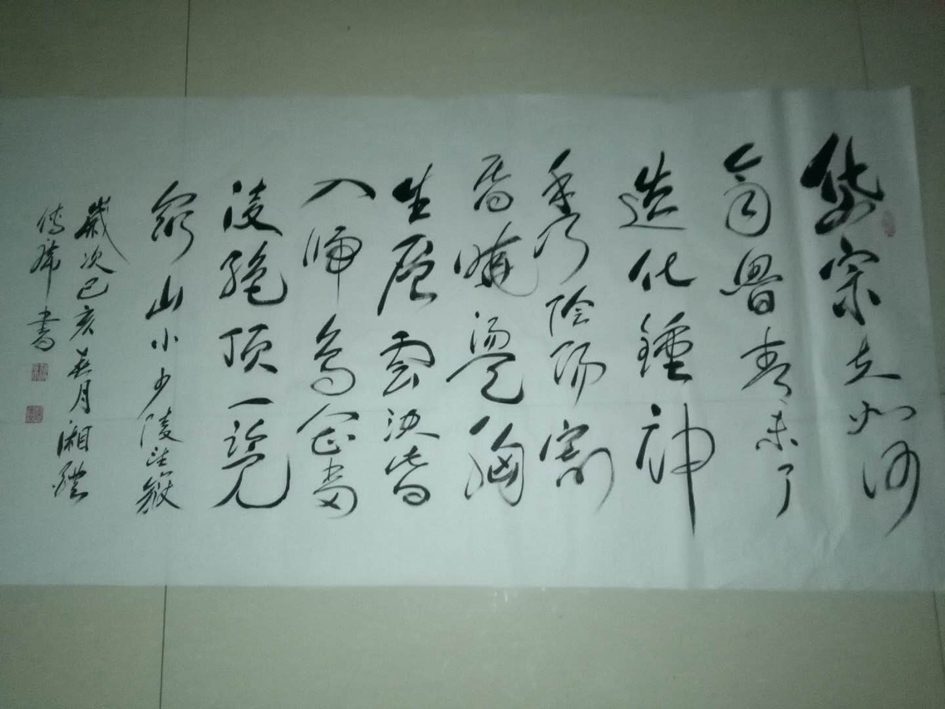 岱宗夫如何
齊魯青未了
造化鍾神
秀陰陽割
昏曉盪胸
生層雲決眥
入歸鳥會當
凌絕頂一覽
眾山小少陵望嶽
歲次己亥月湘
書